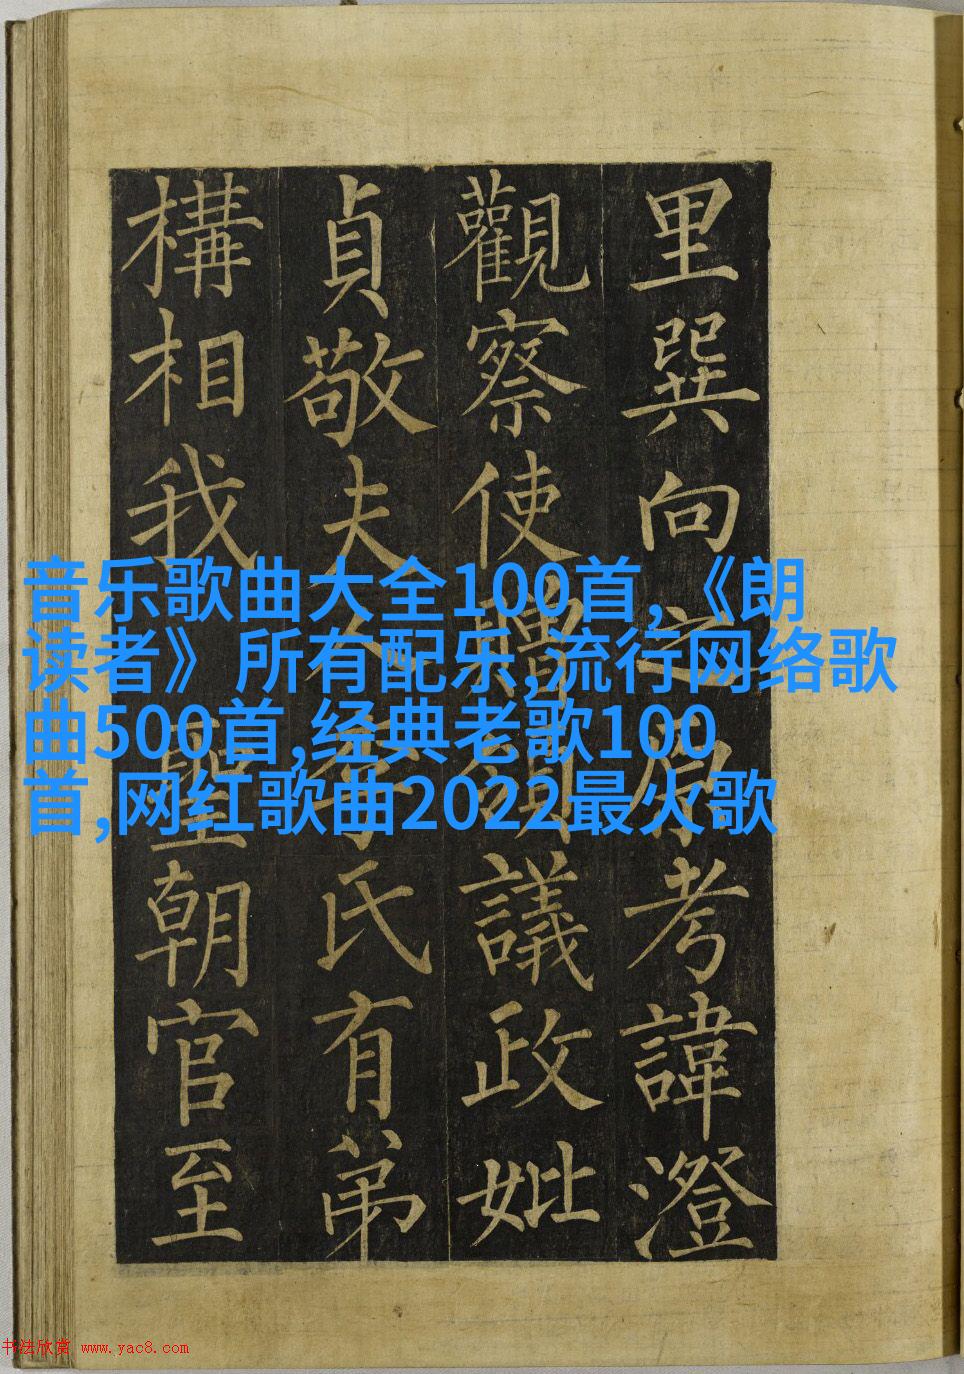 里巽向之原考諱澄
觀察使贈議政妣
貞敬夫人李氏有弟
構相我聖朝官至
音乐歌曲大全100首,《朗
读者》所有配乐,流行网络歌
曲500首,经典老歌100
首,网红歌曲2022最火歌
书法欣赏 www.yac8.com